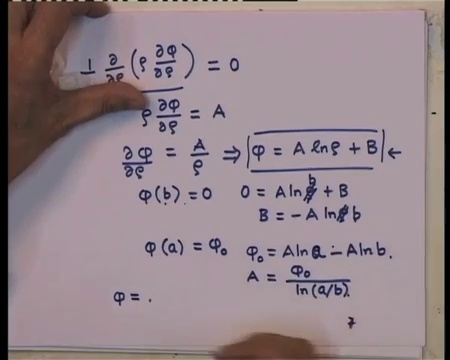 1/ρ ∂/∂ρ (ρ ∂φ/∂ρ) = 0
ρ ∂φ/∂ρ = A
∂φ/∂ρ = A/ρ ⇒ φ = A lnρ + B ←
φ(b) = 0 0 = A ln b + B
B = -A ln b
φ(a) = φ₀ φ₀ = A ln a - A ln b.
A = φ₀/ln(a/b).
φ = .
7